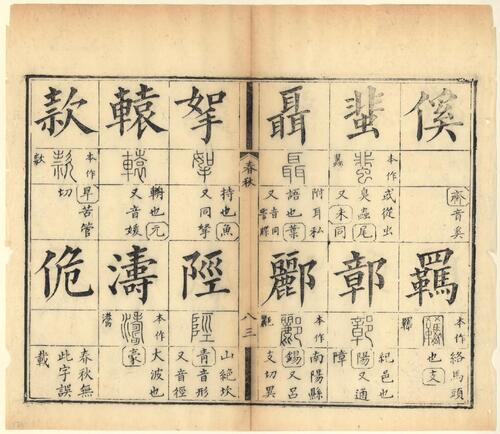 傒
齊音奚
羈
本作絡馬頭
也支
蜚
本作或從虫
臭蟲尾
又未同
鄣
紀邑也
陽又通
障
聶
附耳私
語也葉
又音同
酈
本作南陽縣
錫又呂
支切異
春秋
八三
挐
持也魚
又同拏
陘
山絶坎
青音形
又音徑
轅
輈也元
又音媛
濤
本作大波也
豪
款
本作旱苦管
切
佹
春秋無
此字誤
載